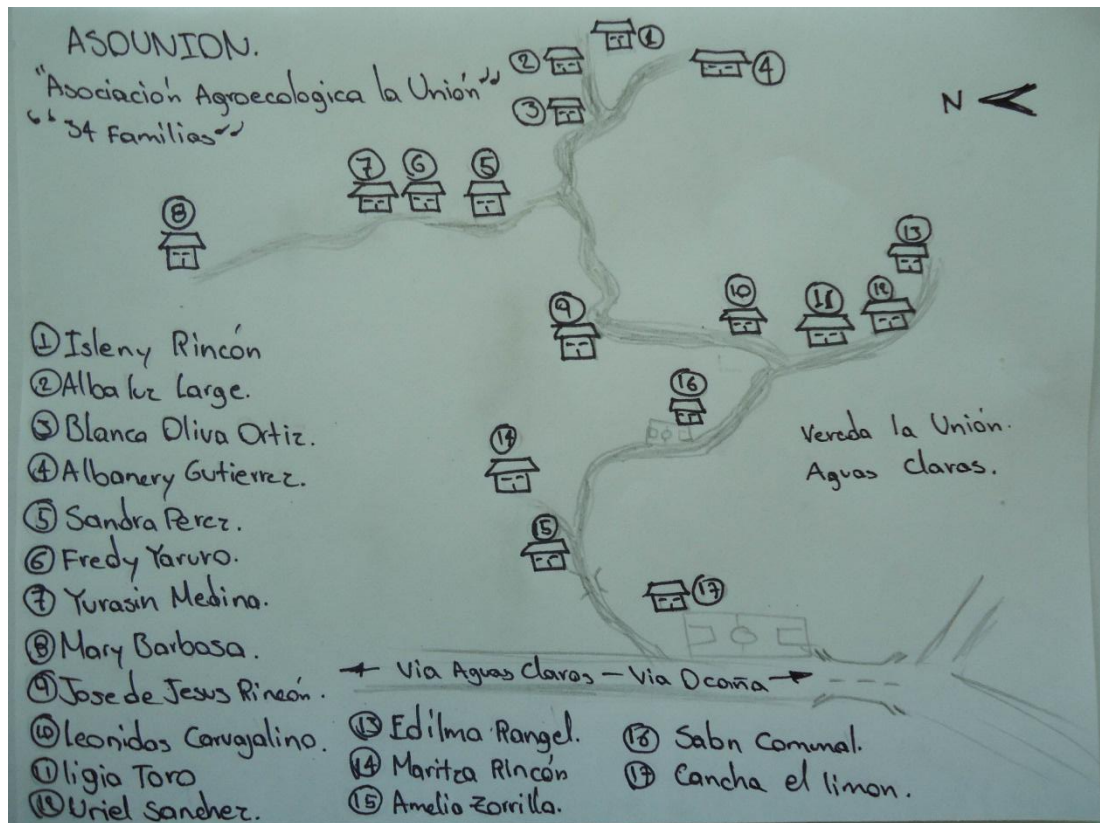 ASOUNION.
"Asociación Agroecologica la Unión"
"34 Familias"
N
1
2
4
3
7
6
5
8
13
9
10
11
12
16
14
Vereda la Unión.
Aguas Claras.
15
17
Via Aguas Claras – Via Ocaña
1 Isleny Rincón
2 Alba luz Large.
3 Blanca Oliva Ortiz.
4 Albanery Gutierrez.
5 Sandra Perez.
6 Fredy Yaruro.
7 Yurasin Medina.
8 Mary Barbosa.
9 Jose de Jesus Rincón.
10 Leonidas Carvajalino.
11 ligia Toro
12 Uriel Sanchez.
13 Edilma Rangel.
14 Maritza Rincón
15 Amelia Zorrilla.
16 Salon Comunal.
17 Cancha el limon.